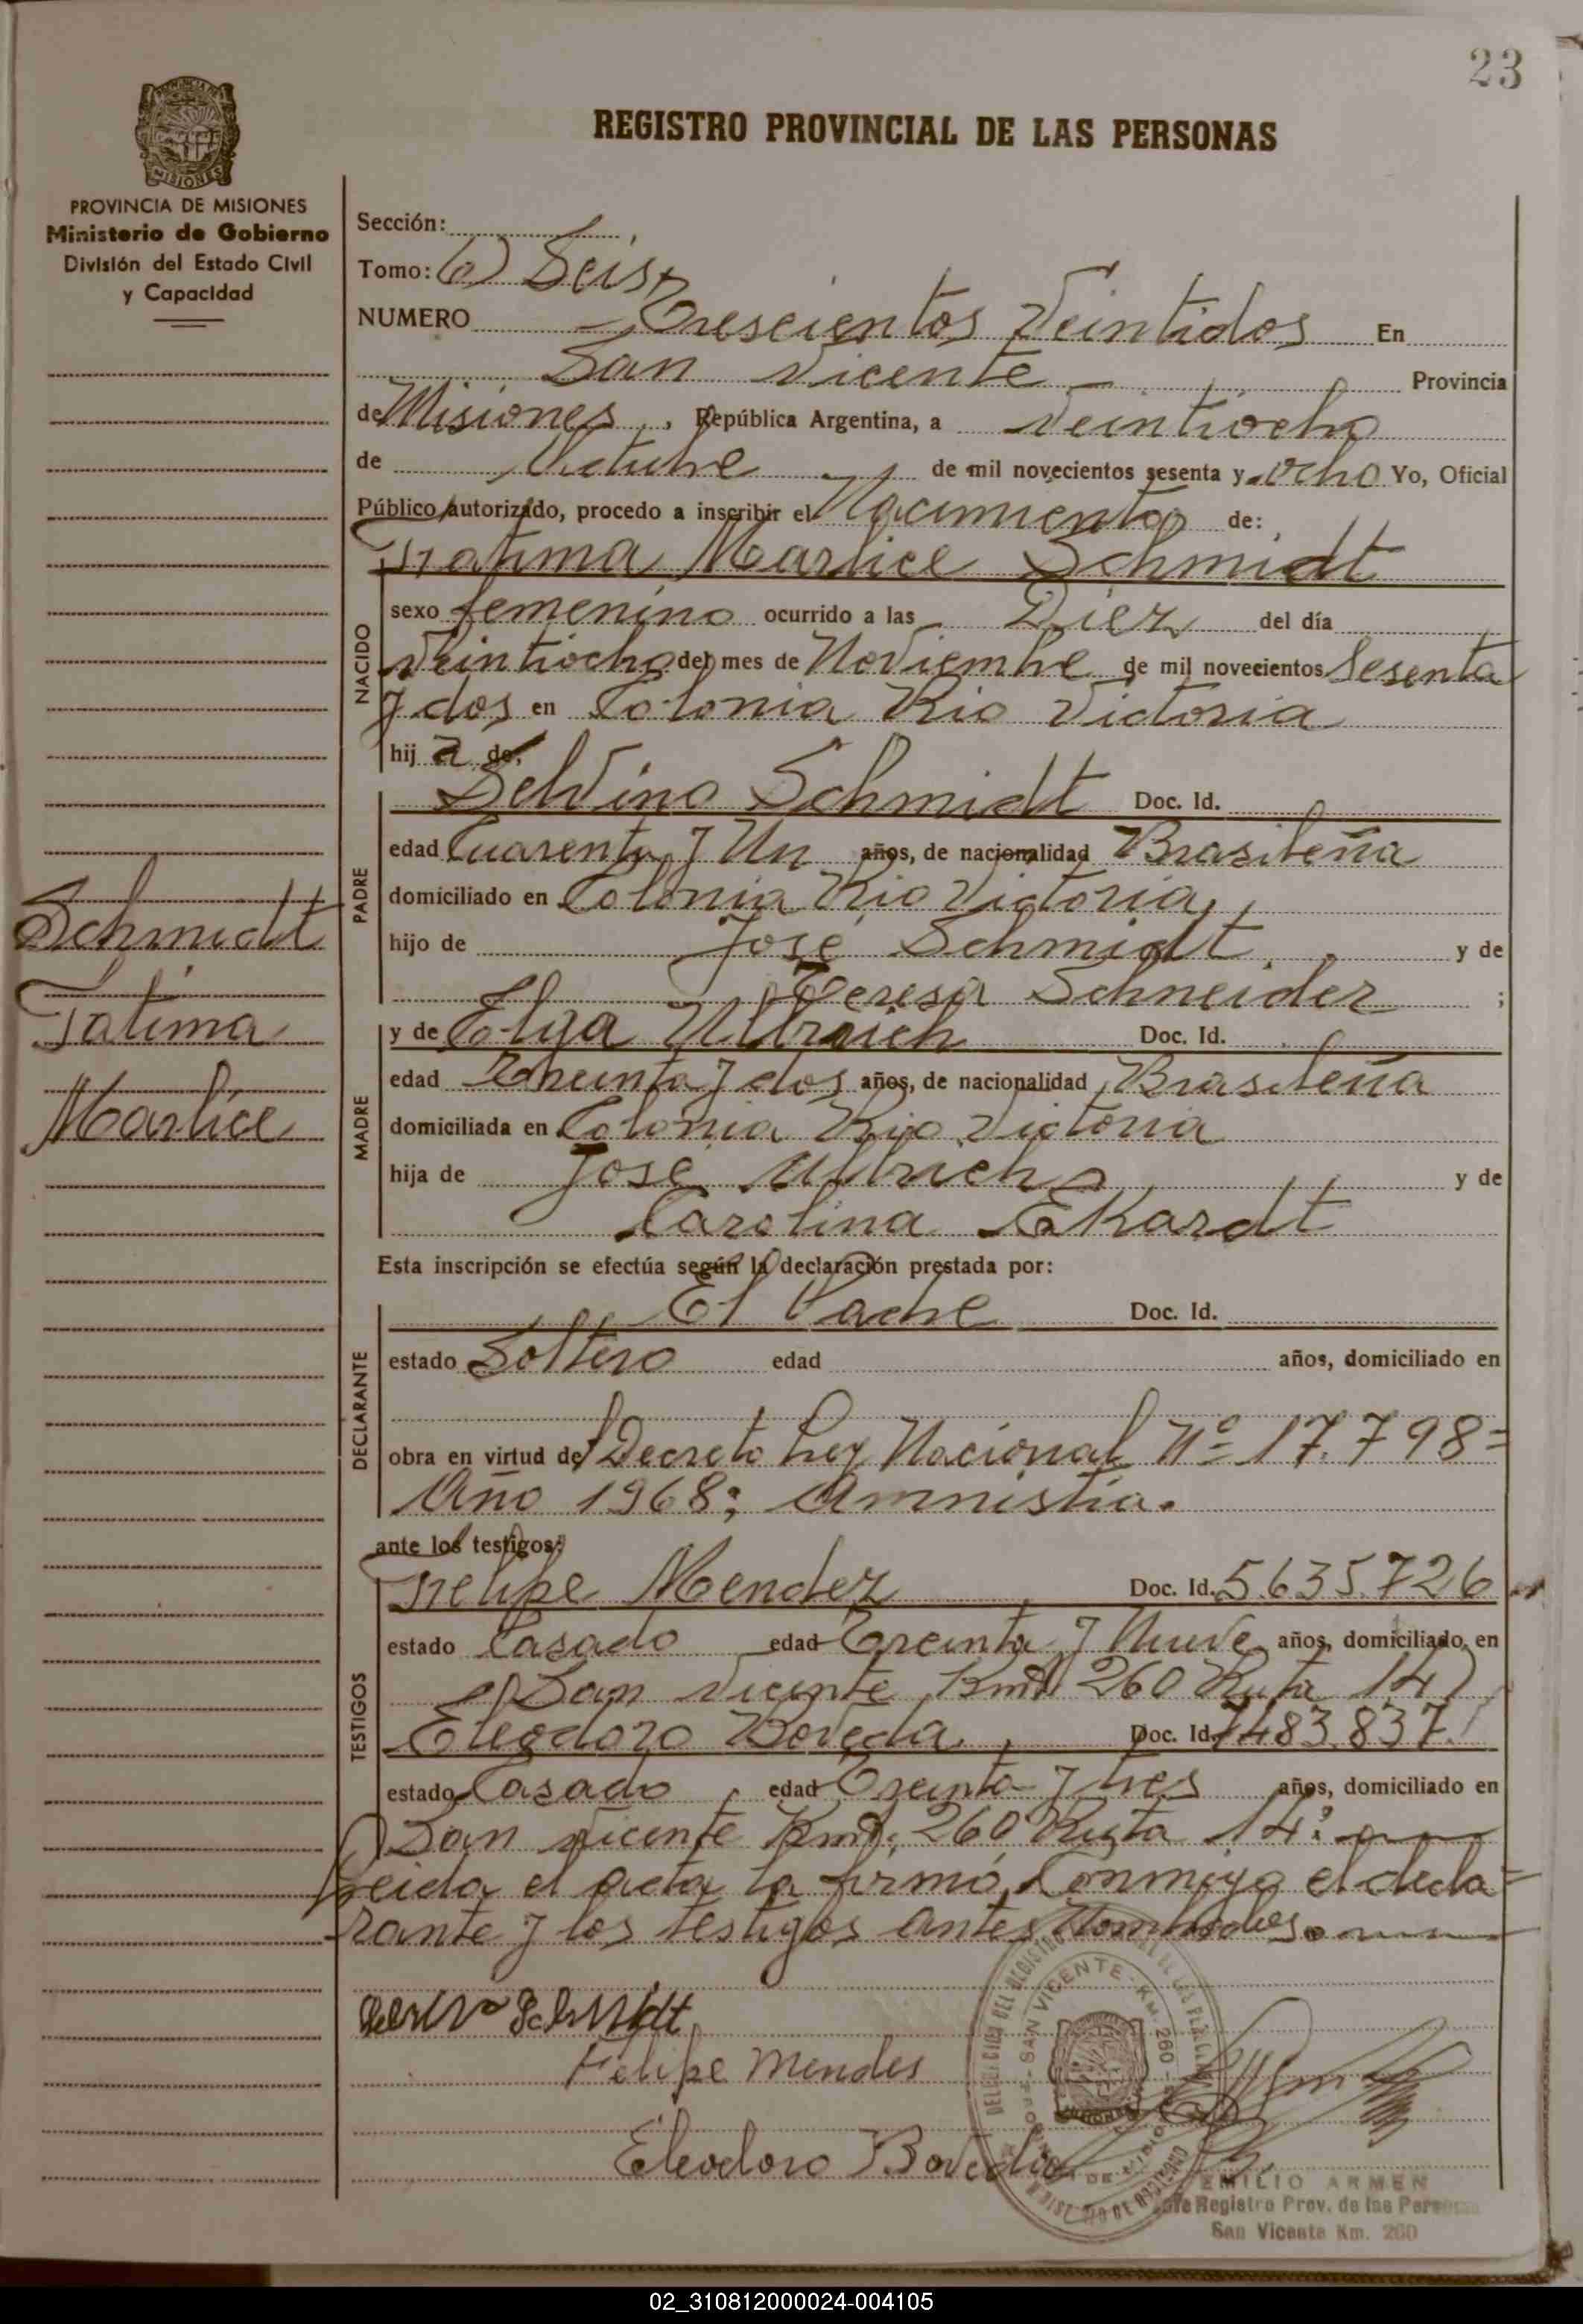 23
REGISTRO PROVINCIAL DE LAS PERSONAS
MISIONES
PROVINCIA DE MISIONES
Ministerio de Gobierno
División del Estado Civil
y Capacidad
Schmidt
Fatima
Marlice
Sección:
Tomo: 6) Seis
NUMERO Trescientos Veintidos En
San Vicente Provincia
de Misiones, República Argentina, a veintiocho
de Octubre de mil novecientos sesenta y ocho Yo, Oficial
Público autorizado, procedo a inscribir el Nacimiento de:
Fatima Marlice Schmidt
NACIDO
sexo femenino ocurrido a las Diez del día
Veintiocho del mes de Noviembre de mil novecientos Sesenta
y dos en Colonia Rio Victoria
hija de
PADRE
Selvino Schmidt Doc. Id.
edad Cuarenta y Un años, de nacionalidad Brasileña
domiciliado en Colonia Rio Victoria,
hijo de José Schmidt y de
Teresa Schneider ;
MADRE
y de Elga Ullrich Doc. Id.
edad Treinta y dos años, de nacionalidad Brasileña
domiciliada en Colonia Rio Victoria
hija de José Ullrich y de
Carolina EKardt
Esta inscripción se efectúa según la declaración prestada por:
DECLARANTE
El Padre Doc. Id.
estado Soltero edad años, domiciliado en
obra en virtud del Decreto Ley Nacional Nº 17.798=
Año 1968; Amnistia.
ante los testigos:
TESTIGOS
Felipe Mendez Doc. Id. 5.635.726
estado Casado edad Treinta y Nueve años, domiciliado en
San Vicente Km. 260 Ruta 14
Eleodoro Boveda Doc. Id. 7.483.837
estado Casado edad Treinta y tres años, domiciliado en
San Vicente Km. 260 Ruta 14:
Leida el acta la firmó, Conmigo el decla=
rante y los testigos antes Nombrados.
Schmidt
Felipe Mendes
Eleodoro Boveda
SAN VICENTE - KM. 260
EMILIO ARMEN
Jefe Registro Prov. de las Personas
San Vicente Km. 260
02_310812000024-004105